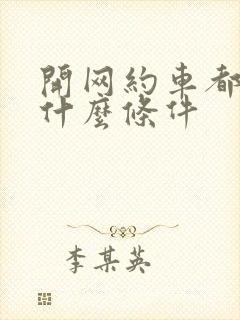 開网約車都
什麼條件
李某英